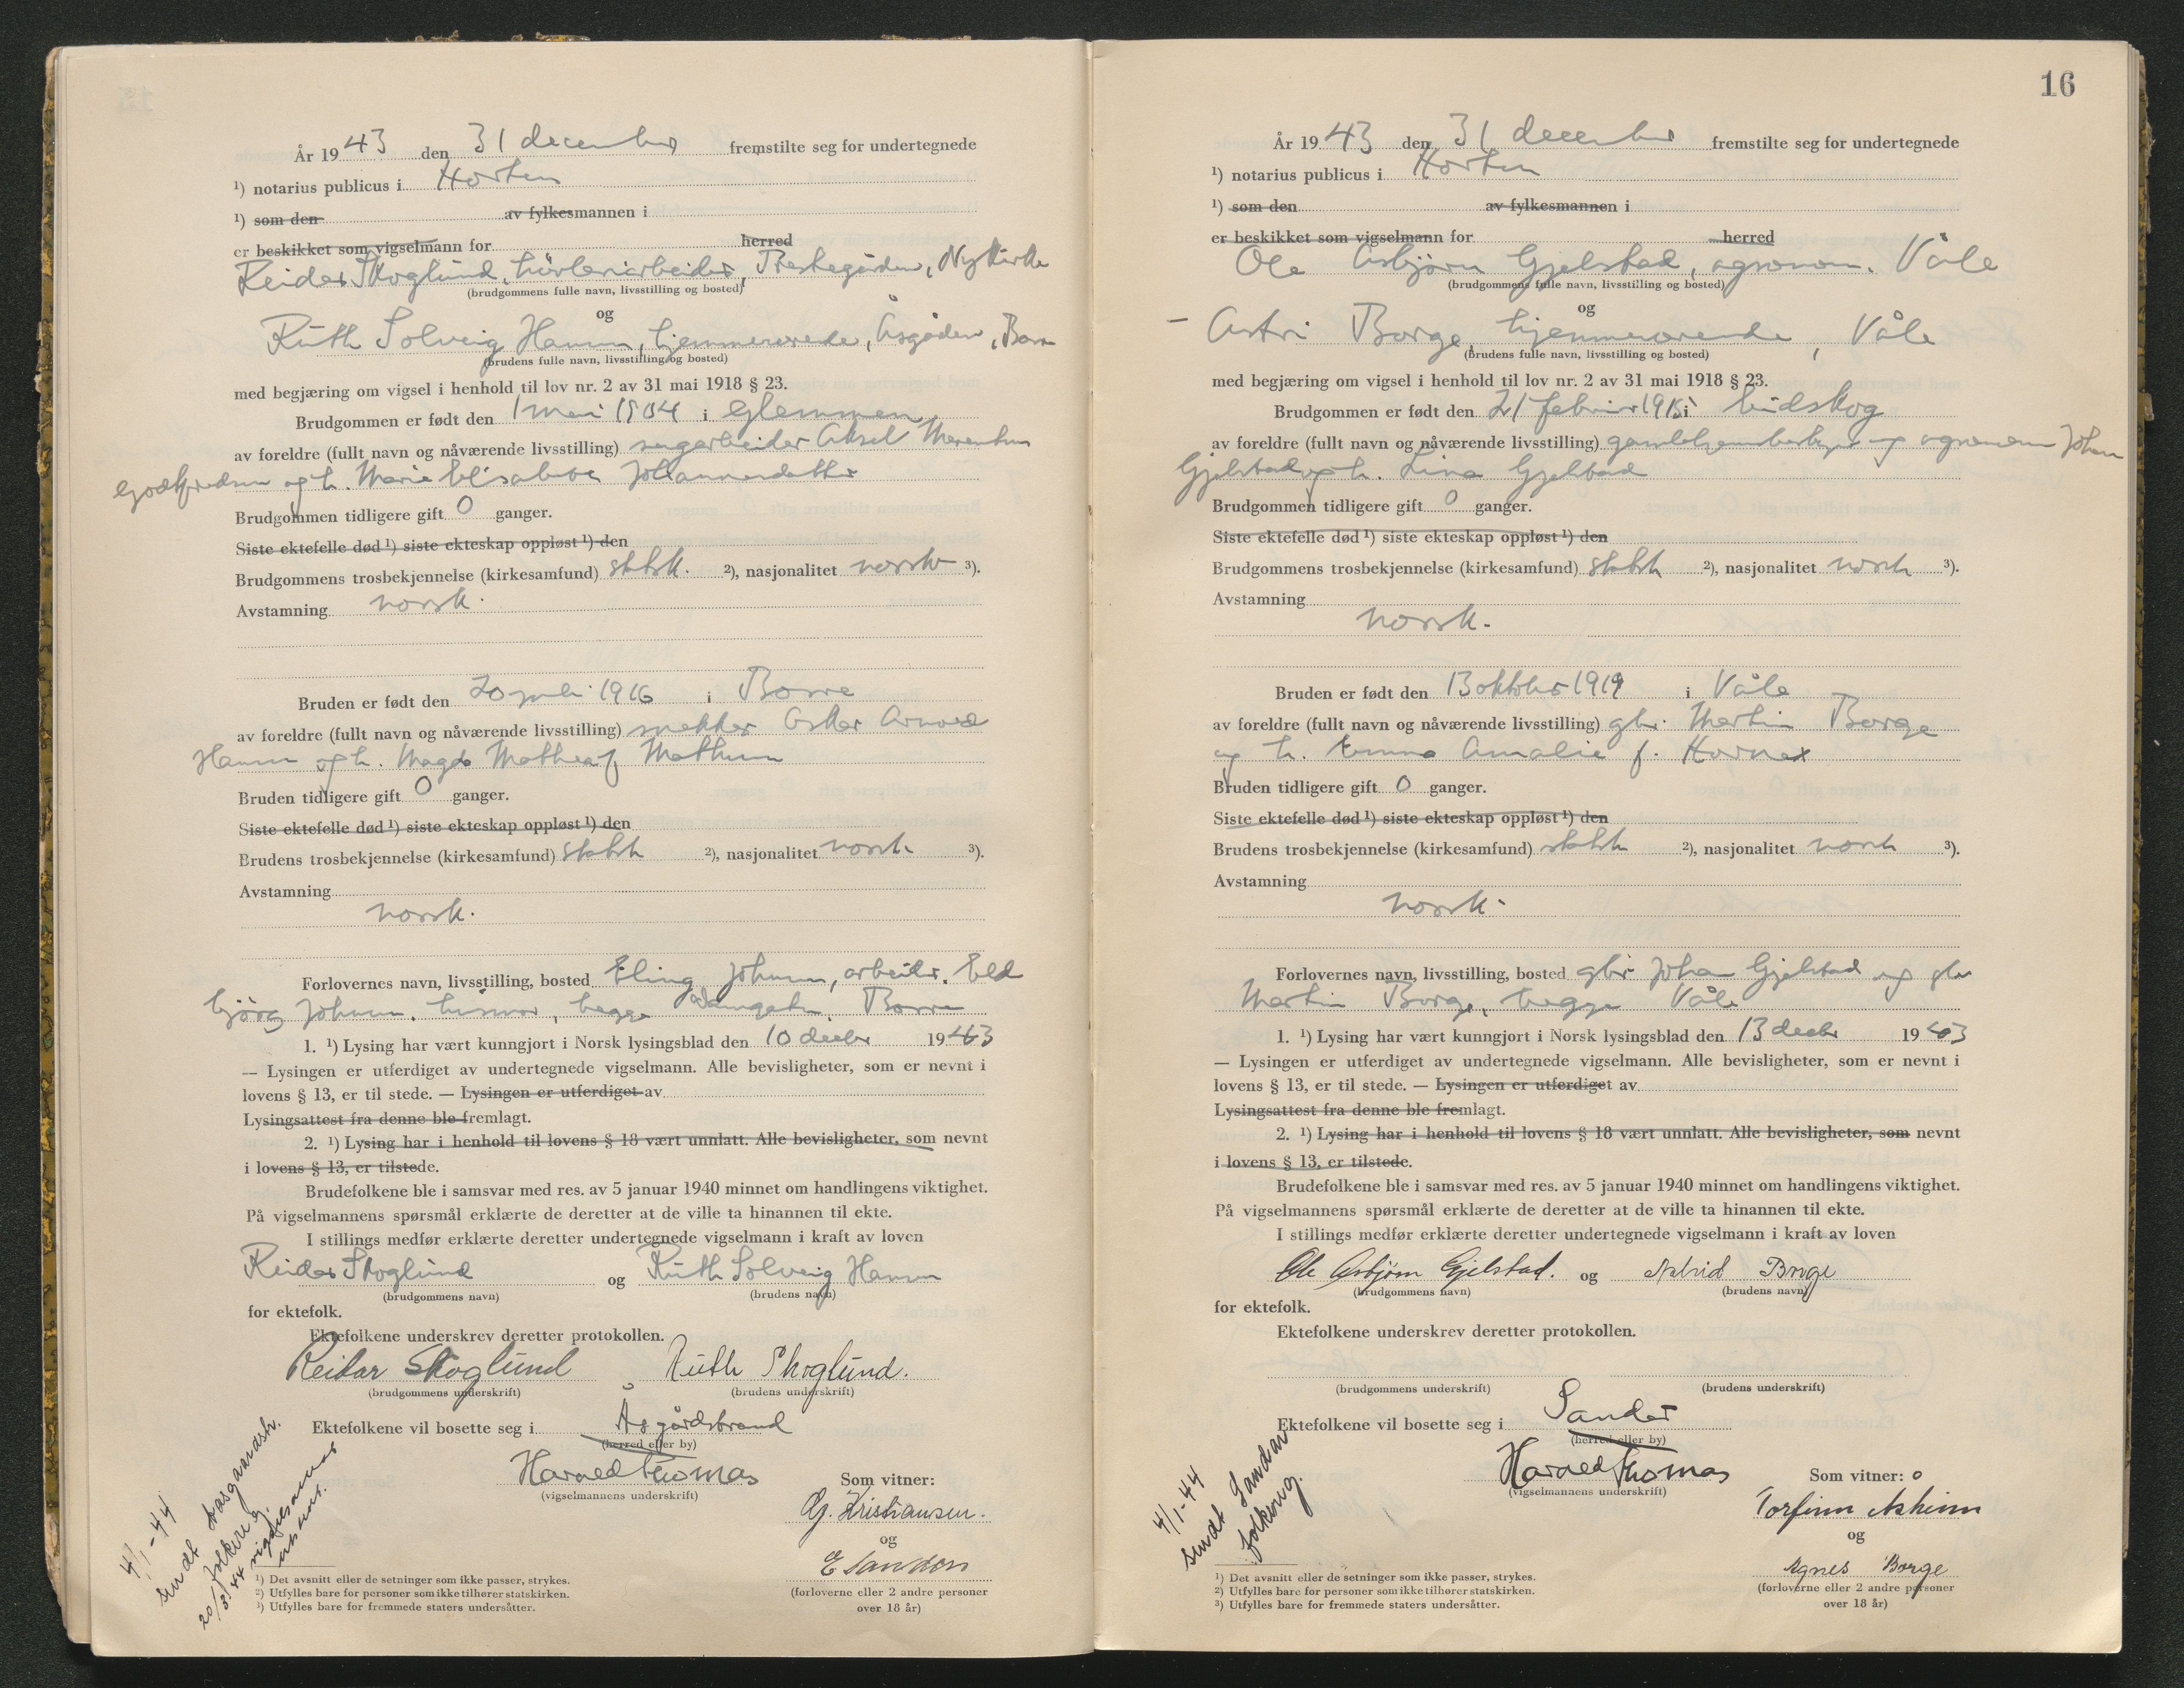 År 1943 den 31 december fremstilte seg for undertegnede
¹) notarius publicus i Horten
¹) som den av fylkesmannen i
er beskikket som vigselmann for herred
Reidar Skoglund, Prestegården, Nykirke
(brudgommens fulle navn, livsstilling og bosted)
og
Ruth Solveig Hamm, hjemmeværende, Åsgården, Borre
(brudens fulle navn, livsstilling og bosted)
med begjæring om vigsel i henhold til lov nr. 2 av 31 mai 1918 § 23.
Brudgommen er født den 1 mai 1904 i Glemmen
av foreldre (fullt navn og nåværende livsstilling) sagarbeider Aksel
og h. Marie Elisabeth Johannesdatter
Brudgommen tidligere gift 0 ganger.
Siste ektefelle død ¹) siste ekteskap oppløst ¹) den
Brudgommens trosbekjennelse (kirkesamfund) statsk. ²), nasjonalitet norsk ³).
Avstamning norsk.
Bruden er født den 20 juli 1916 i Borre
av foreldre (fullt navn og nåværende livsstilling) snekker Oskar Arnved
Hamm og h. Magda Mathea f.
Bruden tidligere gift 0 ganger.
Siste ektefelle død ¹) siste ekteskap oppløst ¹) den
Brudens trosbekjennelse (kirkesamfund) statsk ²), nasjonalitet norsk ³).
Avstamning
norsk.
Forlovernes navn, livsstilling, bosted Johnsen, arbeider, Eld
bjørg Johnsen, husmor, begge Borre
1. ¹) Lysing har vært kunngjort i Norsk lysingsblad den 10 decbr 1943
— Lysingen er utferdiget av undertegnede vigselmann. Alle bevisligheter, som er nevnt i
lovens § 13, er til stede. — Lysingen er utferdiget av
Lysingsattest fra denne ble fremlagt.
2. ¹) Lysing har i henhold til lovens § 18 vært unnlatt. Alle bevisligheter, som nevnt
i lovens § 13, er tilstede.
Brudefolkene ble i samsvar med res. av 5 januar 1940 minnet om handlingens viktighet.
På vigselmannens spørsmål erklærte de deretter at de ville ta hinannen til ekte.
I stillings medfør erklærte deretter undertegnede vigselmann i kraft av loven
Reidar Skoglund og Ruth Solveig Hamm
(brudgommens navn) (brudens navn)
for ektefolk.
Ektefolkene underskrev deretter protokollen.
Reidar Skoglund Ruth Skoglund.
(brudgommens underskrift) (brudens underskrift)
Ektefolkene vil bosette seg i Åsgårdstrand
(herred eller by)
Harald Thomas Som vitner:
(vigselmannens underskrift)
Og. Kristiansen.
og
E Sanden
(forloverne eller 2 andre personer
over 18 år)
4/1-44
sendt Aasgaardstr.
folkereg.
20/3 44 vigselsattest
utst.
¹) Det avsnitt eller de setninger som ikke passer, strykes.
²) Utfylles bare for personer som ikke tilhører statskirken.
³) Utfylles bare for fremmede staters undersåtter.
16
År 1943 den 31 december fremstilte seg for undertegnede
¹) notarius publicus i Horten
¹) som den av fylkesmannen i
er beskikket som vigselmann for herred
Ole Asbjørn Gjelstad, agronom, Våle
(brudgommens fulle navn, livsstilling og bosted)
og
– Astri Borge, hjemmeværende, Våle
(brudens fulle navn, livsstilling og bosted)
med begjæring om vigsel i henhold til lov nr. 2 av 31 mai 1918 § 23.
Brudgommen er født den 21 februar 1915 i Eidskog
av foreldre (fullt navn og nåværende livsstilling) gamlehjemsbestyrer og agronom Johan
Gjelstad og h. Lina Gjelstad
Brudgommen tidligere gift 0 ganger.
Siste ektefelle død ¹) siste ekteskap oppløst ¹) den
Brudgommens trosbekjennelse (kirkesamfund) statsk ²), nasjonalitet norsk ³).
Avstamning
norsk.
Bruden er født den 13 oktober 1919 i Våle
av foreldre (fullt navn og nåværende livsstilling) gbr. Martin Borge
og h. Emma Amalie f.
Bruden tidligere gift 0 ganger.
Siste ektefelle død ¹) siste ekteskap oppløst ¹) den
Brudens trosbekjennelse (kirkesamfund) statsk ²), nasjonalitet norsk ³).
Avstamning
norsk.
Forlovernes navn, livsstilling, bosted gbr Johan Gjelstad og gbr
Martin Borge, begge Våle
1. ¹) Lysing har vært kunngjort i Norsk lysingsblad den 13 decbr 1943
— Lysingen er utferdiget av undertegnede vigselmann. Alle bevisligheter, som er nevnt i
lovens § 13, er til stede. — Lysingen er utferdiget av
Lysingsattest fra denne ble fremlagt.
2. ¹) Lysing har i henhold til lovens § 18 vært unnlatt. Alle bevisligheter, som nevnt
i lovens § 13, er tilstede.
Brudefolkene ble i samsvar med res. av 5 januar 1940 minnet om handlingens viktighet.
På vigselmannens spørsmål erklærte de deretter at de ville ta hinannen til ekte.
I stillings medfør erklærte deretter undertegnede vigselmann i kraft av loven
Ole Asbjørn Gjelstad. og Astrid Borge
(brudgommens navn) (brudens navn)
for ektefolk.
Ektefolkene underskrev deretter protokollen.
(brudgommens underskrift) (brudens underskrift)
Ektefolkene vil bosette seg i Sandar
(herred eller by)
Harald Thomas Som vitner:
(vigselmannens underskrift)
Torfinn Askeim
og
Agnes Borge
(forloverne eller 2 andre personer
over 18 år)
4/1-44
sendt Sandar
folkereg.
¹) Det avsnitt eller de setninger som ikke passer, strykes.
²) Utfylles bare for personer som ikke tilhører statskirken.
³) Utfylles bare for fremmede staters undersåtter.